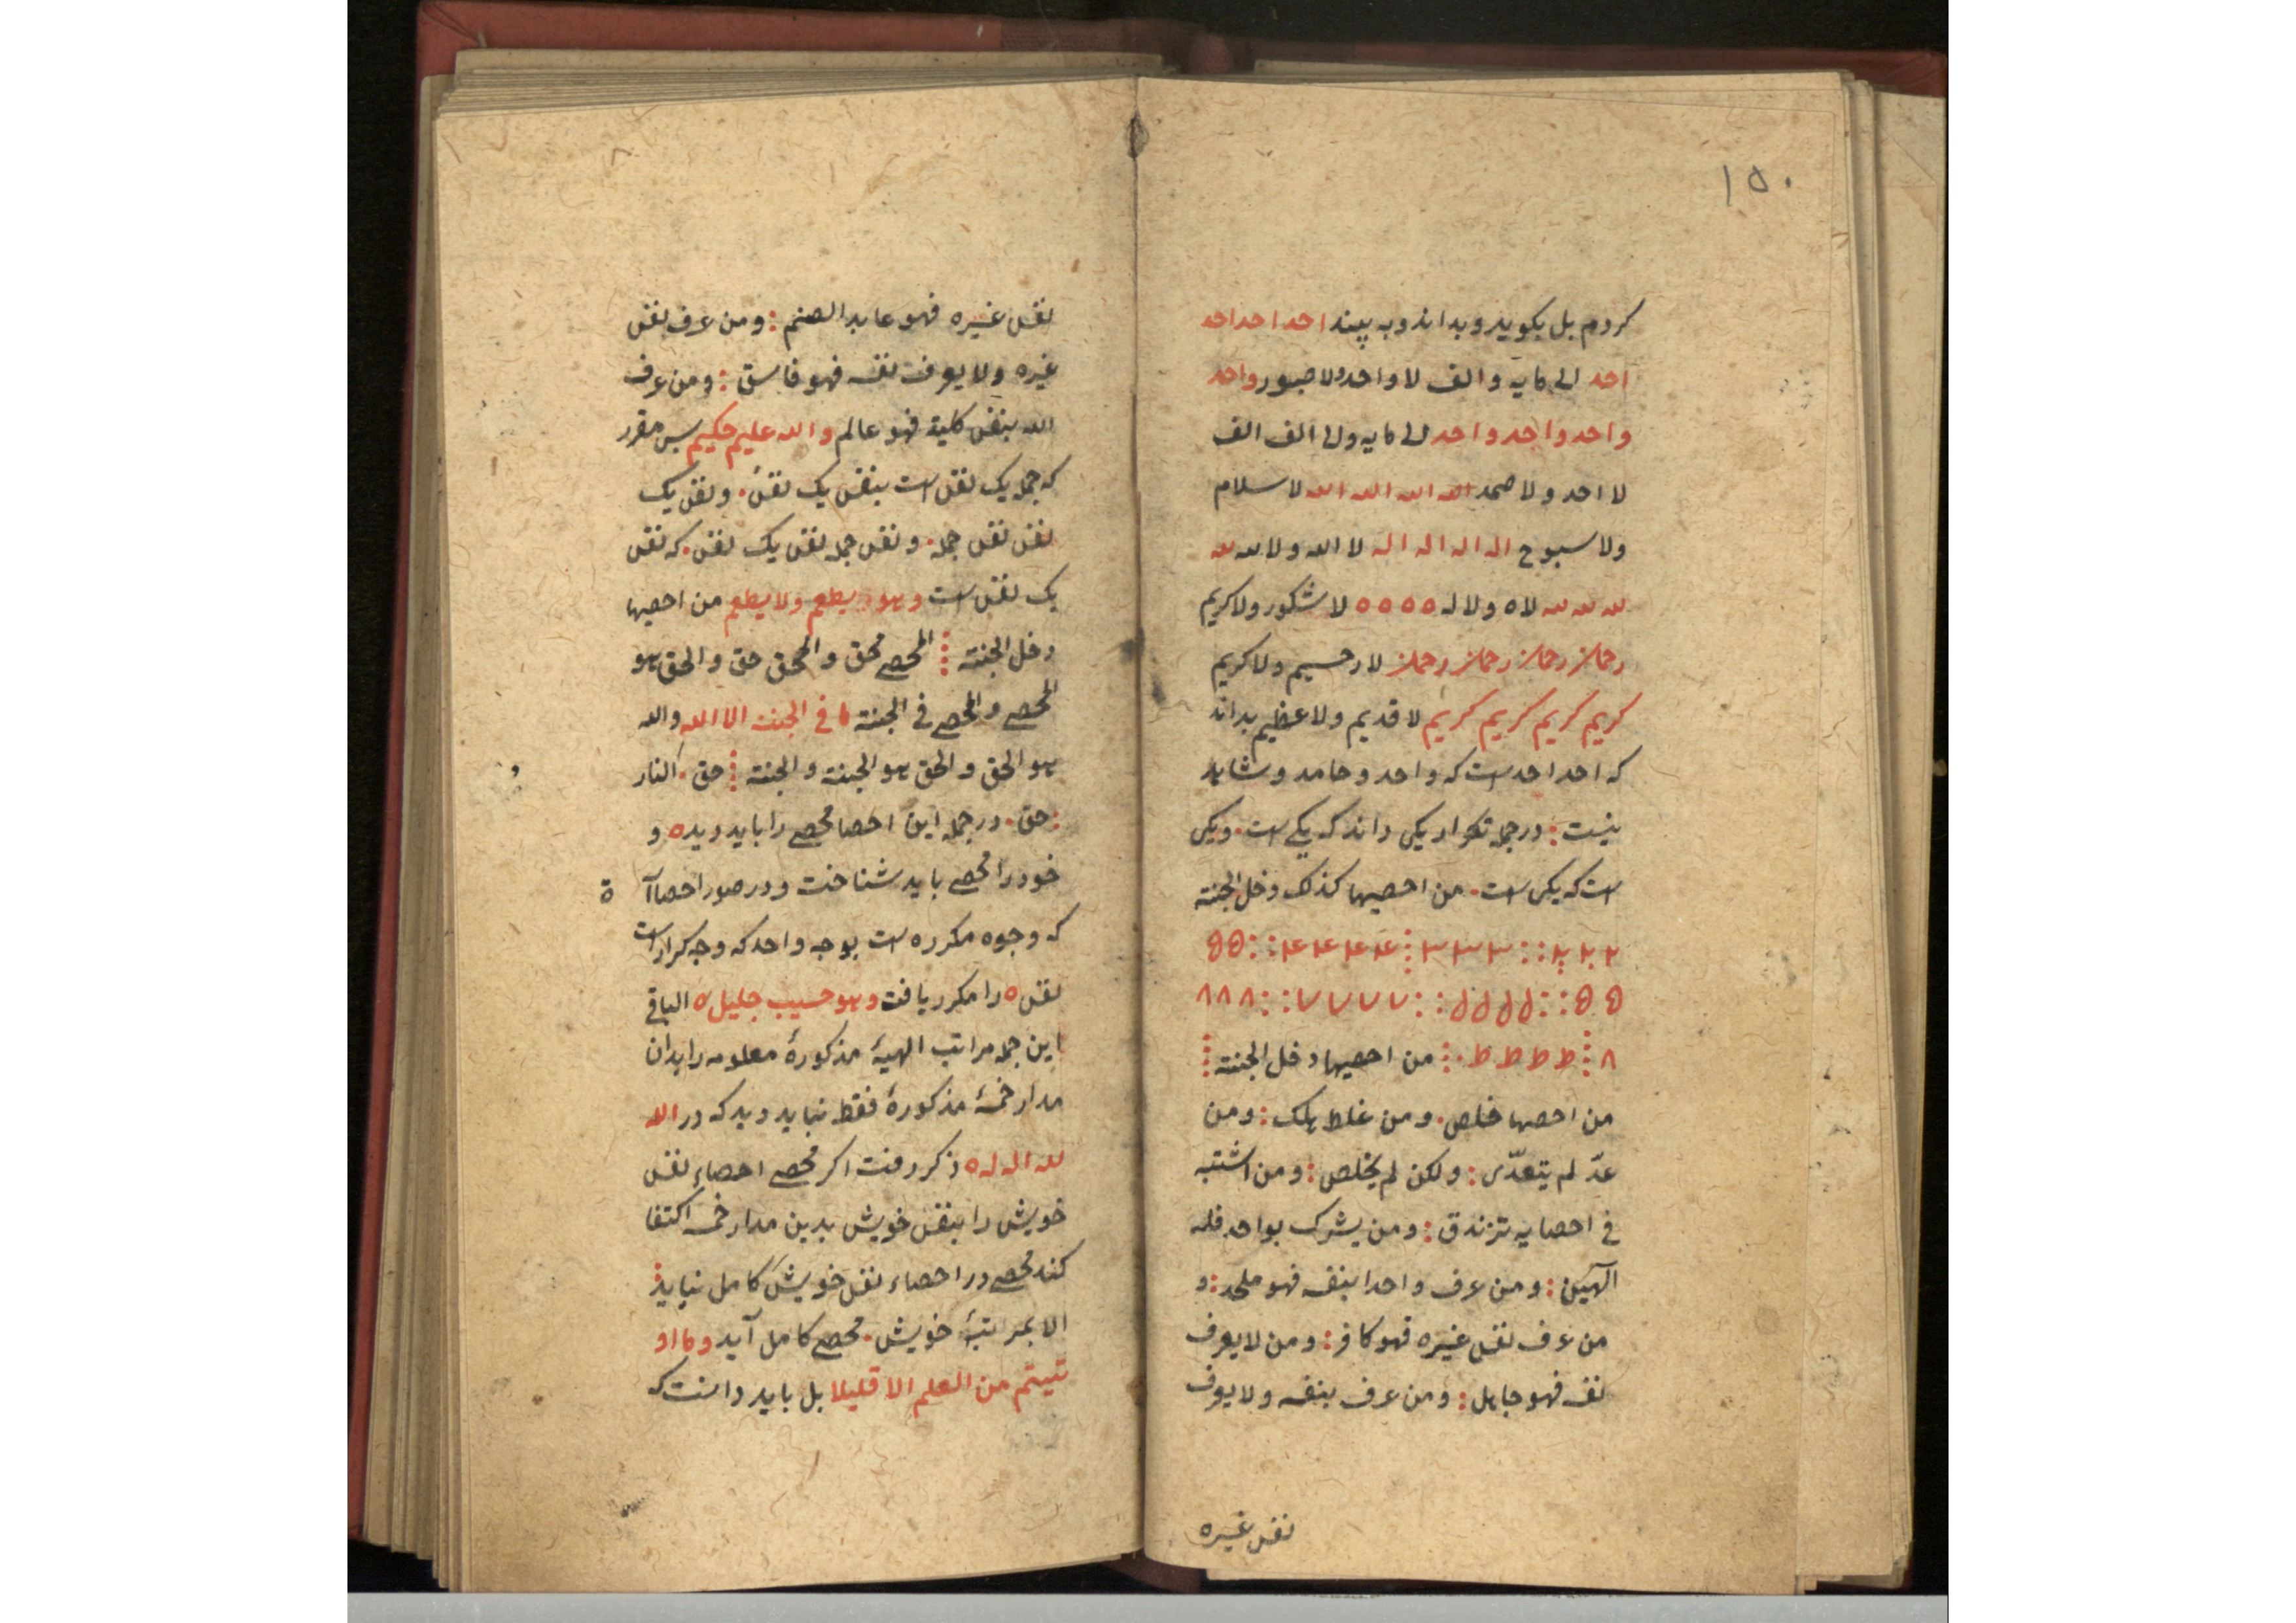 ۱۵۰
کردم بل بکوید و بداند و به بیند احد احد احد
احد الی مایه و الف لا واحد ولا صبور واحد
واحد واحد واحد الی مایه والی الف الف
لا احد ولا صمد الله الله الله الله لا سلام
ولا سبوح اله اله اله اله لا الله ولا لله لله
لله لله لله لاه ولا له ه ه ه ه لا شکور ولا کریم
رحمان رحمان رحمان رحمان لا رحیم ولا کریم
کریم کریم کریم کریم لا قدیم ولا عظیم بداند
که احد احد ست که واحد و حامد و شاهد
نیست : در جمله تکرار یکی داند که یکی است . و یکی
است که یکی است . من احصیها کذلک دخل الجنة
۲ ۲ ۲ ۳ ۳ ۳ ۴ ۴ ۴ ۴ ۵ ۵
۵ ۵ ۶ ۶ ۶ ۶ ۷ ۷ ۷ ۷ ۸ ۸ ۸
۸ ط ط ط ط . من احصیها دخل الجنة
من احصها خلص . ومن غلط هلک : ومن
عدّ لم یتعدّی : ولکن لم یخلص : ومن اشتبه
فی احصایه تزندق : ومن یشرک بواحد فله
آلهین : ومن عرف واحدا بنفسه فهو ملحد : و
من عرف نفس غیره فهو کافر : ومن لا یعرف
نفسه فهو جاهل : ومن عرف بنفسه ولا یعرف
نفس غیره
نفس غیره فهو عابد الصنم : ومن عرف بنفس
غیره ولا یعرف نفسه فهو فاسق : ومن عرف
الله بنفس کلیة فهو عالم والله علیم حکیم پس مقرر
که جمله یک نفس است بنفس یک نفس . و نفس یک
نفس نفس جمله . و نفس جمله نفس یک نفس . که نفس
یک نفس است وهو یطعم ولا یطعم من احصیها
دخل الجنة المحصی محق و المحق حق و الحق هو
المحصی و المحصی فی الجنة ما فی الجنة الا الله والله
هو الحق و الحق هو الجنة و الجنة حق . النار
: حق . در جمله این احصا محصی را باید دید ه و
خود را محصی باید شناخت و در صور احصا آ ة
که وجوه مکرره است بوجه واحد که وجه کرار است
نفس ه را مکرر یافت وهو حسیب جلیل ه الباقی
این جمله مراتب الهیهٔ مذکورهٔ معلومه را بدان
مدار خمسهٔ مذکورهٔ فقط نباید دید که در الله
لله اله له ه ذکر رفت اکر محصی احصاء نفس
خویش را بنفس خویش بدین مدار خمسه اکتفا
کند محصی در احصاء نفس خویش کامل نیاید
الا بمراتبهٔ خویش . محصی کامل آید وما او
تیتم من العلم الا قلیلا بل باید دانست که